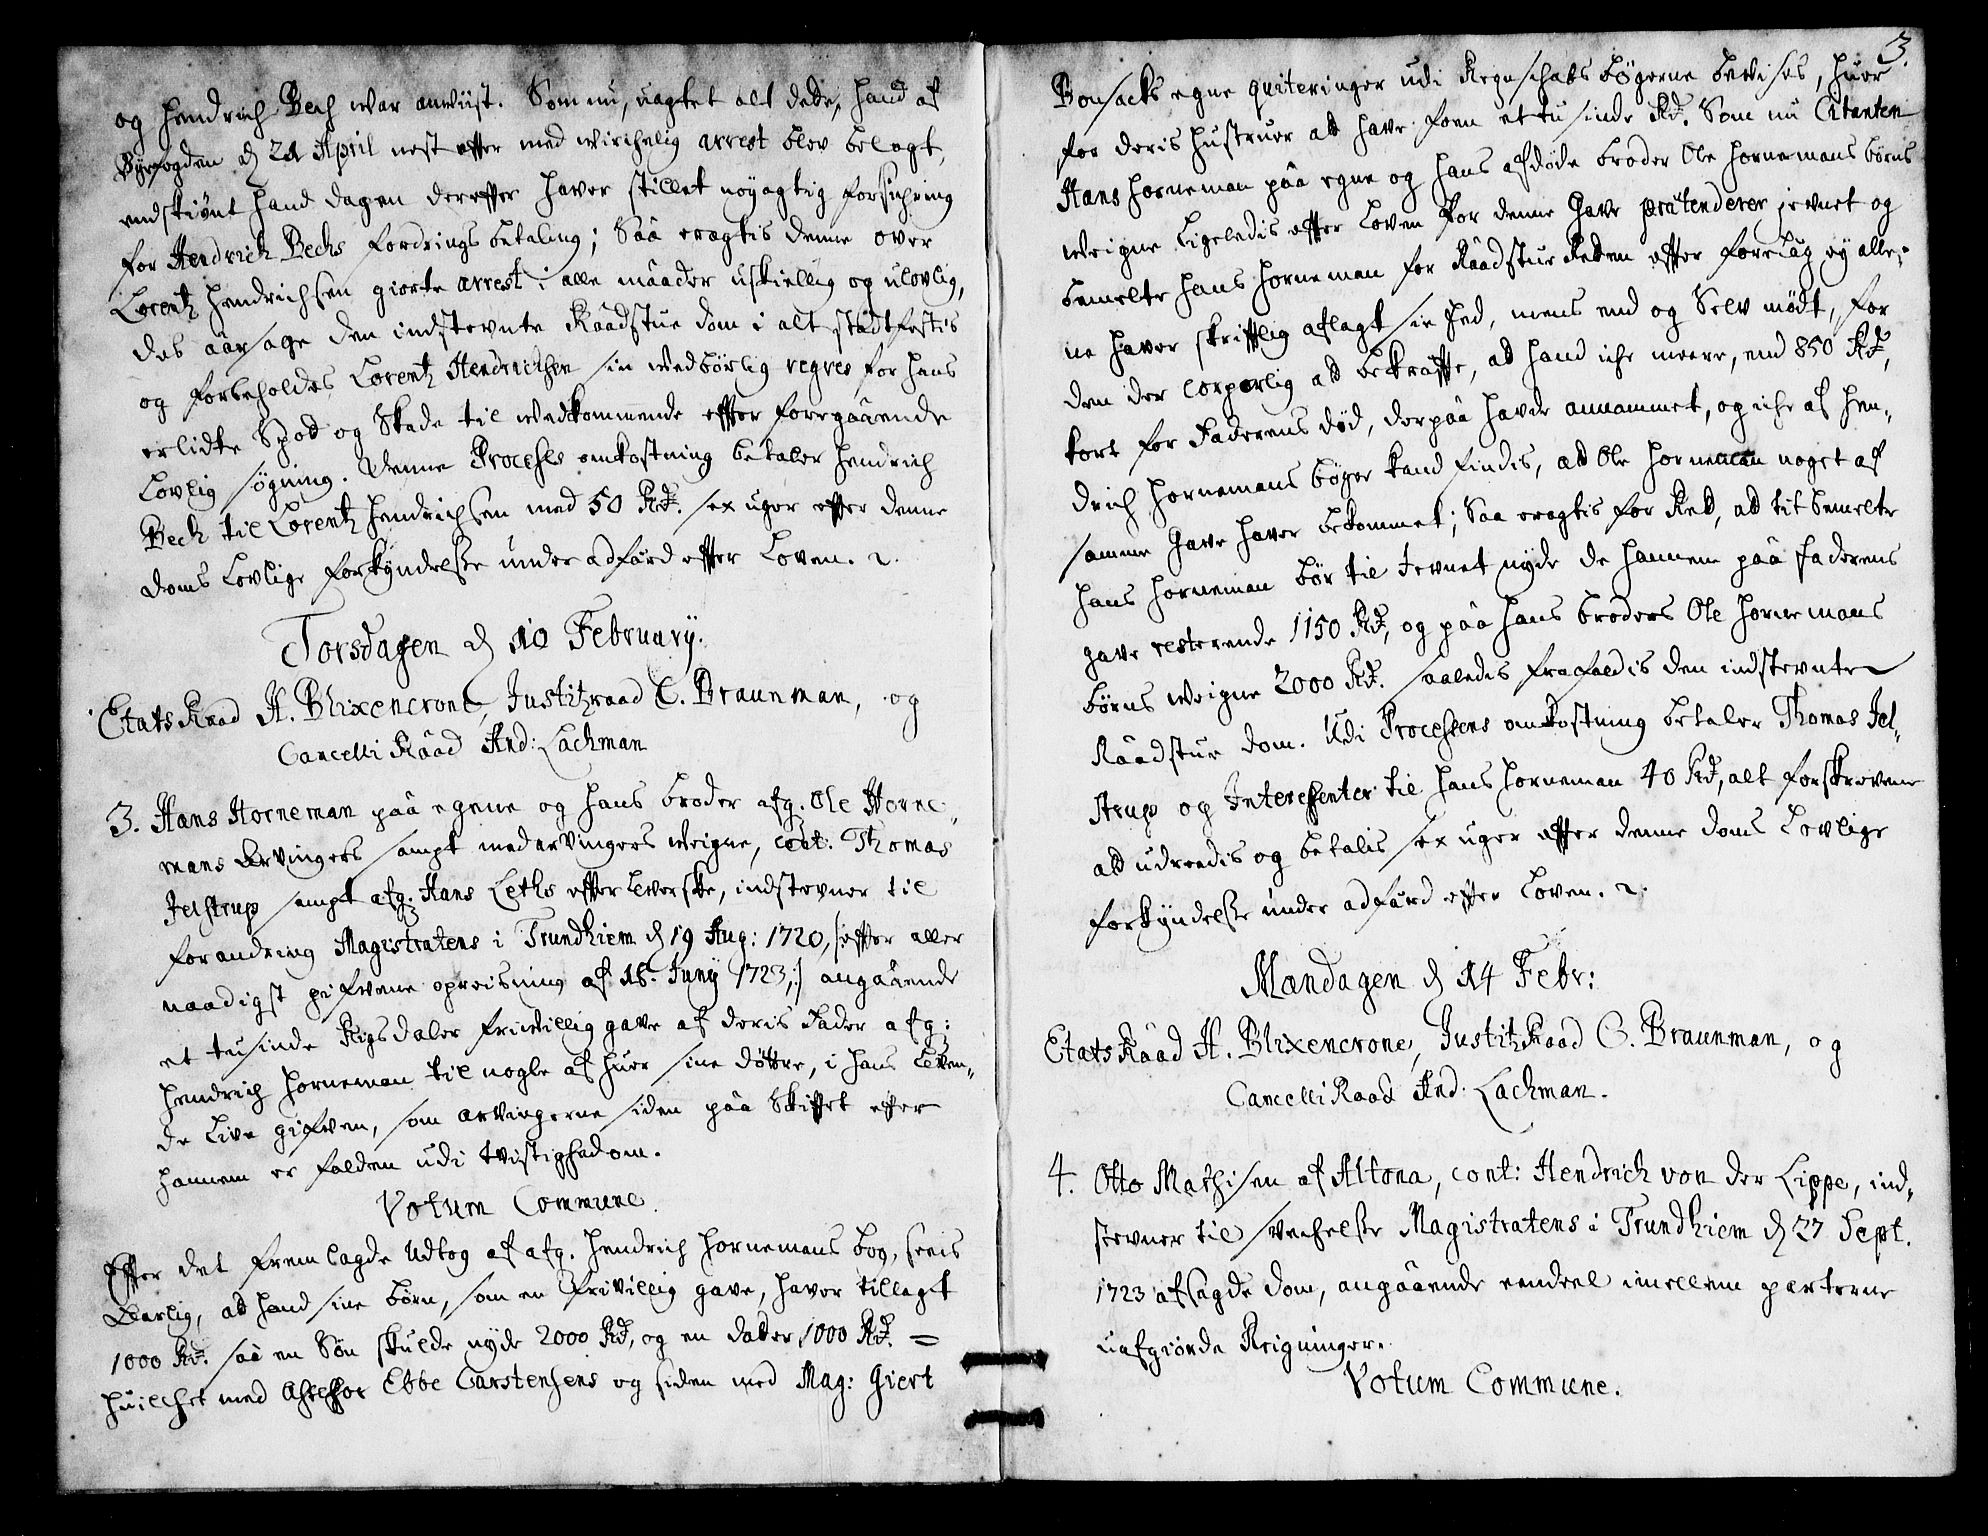 og Hendrich Bech war anviist. Som nu, uagtet alt dette, hand af
Byefogden d 21 April nest effter med wirchelig arrest blev belagt,
endskiønt hand dagen dereffter haver stillet nøyagtig forsichring
for Hendrich Bechs fordrings betaling; Saa eragtis denne over
Lorentz Hendrichsen giorte arrest i alle maader uskiellig og ulovlig,
des aarsage den indstevnte Raadstue dom i alt stadfestis
og forbeholdes Lorentz Hendrichsen sin wedbørlig regres for hans
erlidte Spot og Skade til wedkommende effter foregaaende
Lovlig søgning. Denne Processes omkostning betaler Hendrich
Bech til Lorentz Hendrichsen med 50 Rd. sex uger effter denne
doms Lovlige forkyndelsse under adfærd effter Loven.
Torsdagen d 10 February.
Etats Raad H. Blixencrone, Justitzraad C. Braunman, og
Cancelli Raad And: Lachman
3. Hans Horneman paa egene og hans broder afg. Ole Horne-
mans Arvingers sampt medarvingers weigne, cont: Thomas
Jelstrup sampt afg. Hans Leths effterleverske, indstevner til
forandring Magistratens i Trundhiem d 19 Aug: 1720, (effter aller
naadigst gifvene opreisning af 15. Juny 1723,:) angaaende
et tusinde Rigsdaler friewillig gave af deris Fader afg:
Hendrich Horneman til nogle af huer sine døttre, i hans leven-
de Live gifven, som arvingerne siden paa Skifftet effter
hannem er falden udi twistighed om.
Votum Commune.
Effter det fremlagde Udtog af afg. Hendrich Hornemans bog, sees
klarlig, at hand sine børn, som en frivillig gave, haver tillagt
1000 Rd. saa en Søn skulde nyde 2000 Rd, og en datter 1000 Rd. =
huilchet med Assessor Ebbe Carstensens og siden med Mag: Giert
3.
Bonsacks egne quiteringer udi Regnskabs bøgerne bevises, huer
for deris hustruer at have faaen et tusinde Rd. Som nu Citanten
Hans Horneman paa egne og hans afdøde broder Ole Hornemans børns
weigne Ligeledis effter Loven for denne Gave prætenderer jevnet og
bemelte Hans Horneman for Raadstue Retten effter forelæg ey alle-
ne haver skrifftlig aflagt sin Eed, mens end og Selv mødt, for
den der corporlig at bekræffte, at hand iche meere, end 850 Rd,
kort for Faderens død, derpaa havde annammet, og iche af Hen-
drich Hornemans bøger kand findis, at Ole Horneman noget af
samme Gave haver bekommet; Saa eragtis for Ret, at tit bemelte
Hans Horneman bør til Jevnet nyde de hannem paa Faderens
gave resterende 1150 Rd, og paa hans broders Ole Hornemans
børns weigne 2000 Rd. saaledis frafaldis den indstevnte
Raadstue dom. Udi Processens omkostning betaler Thomas Jel-
strup og Interessenter til Hans Horneman 40 Rd, alt forskrevene
at udreedis og betalis sex uger effter denne doms Lovlige
forkyndelsse under adfærd effter Loven.
Mandagen d 14 Febr:
Etats Raad H. Blixencrone, Justitz Raad C. Braunman, og
Cancelli Raad And: Lachman.
4. Otto Mathisen af Altona, cont: Hendrich von der Lippe, ind-
stevner til svechelsse Magistratens i Trundhiem d 27 Sept.
1723 afsagde dom, angaaende eendeel imellem parterne
uafgiorde Reigninger.
Votum Commune.